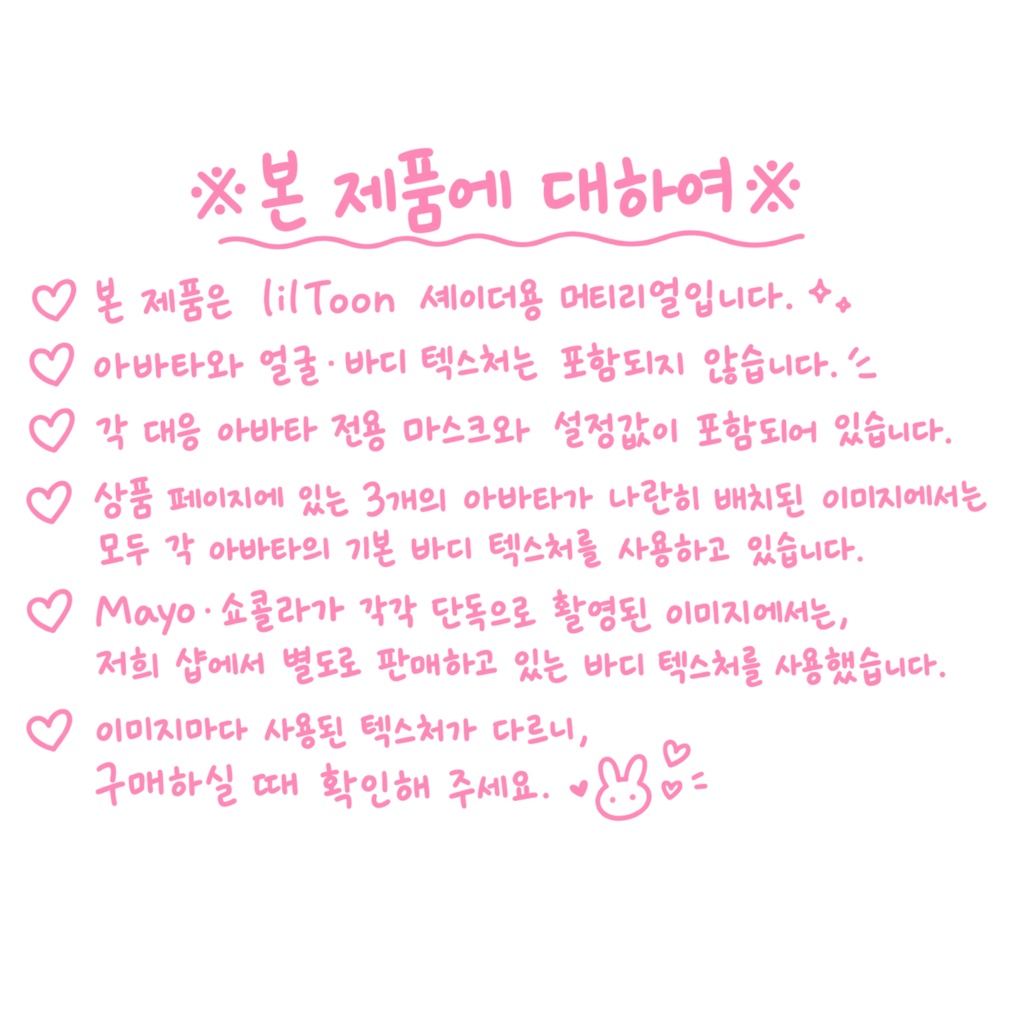 ※본 제품에 대하여※
♡ 본 제품은 lilToon 셰이더용 머티리얼입니다.
♡ 아바타와 얼굴·바디 텍스처는 포함되지 않습니다.
♡ 각 대응 아바타 전용 마스크와 설정값이 포함되어 있습니다.
♡ 상품 페이지에 있는 3개의 아바타가 나란히 배치된 이미지에서는
모두 각 아바타의 기본 바디 텍스처를 사용하고 있습니다.
♡ Mayo·쇼콜라가 각각 단독으로 촬영된 이미지에서는,
저희 샵에서 별도로 판매하고 있는 바디 텍스처를 사용했습니다.
♡ 이미지마다 사용된 텍스처가 다르니,
구매하실 때 확인해 주세요.